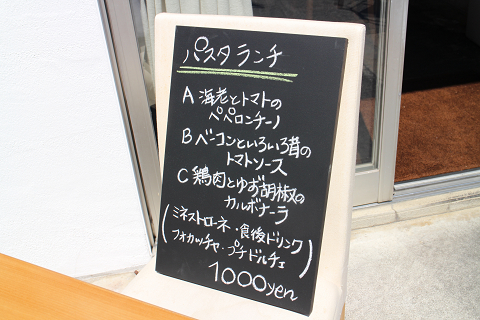 パスタランチ
A 海老とトマトの
ペペロンチーノ
B ベーコンといろいろ茸の
トマトソース
C 鶏肉とゆず胡椒の
カルボナーラ
(ミネストローネ・食後ドリンク
フォカッチャ・プチドルチェ)
1000yen